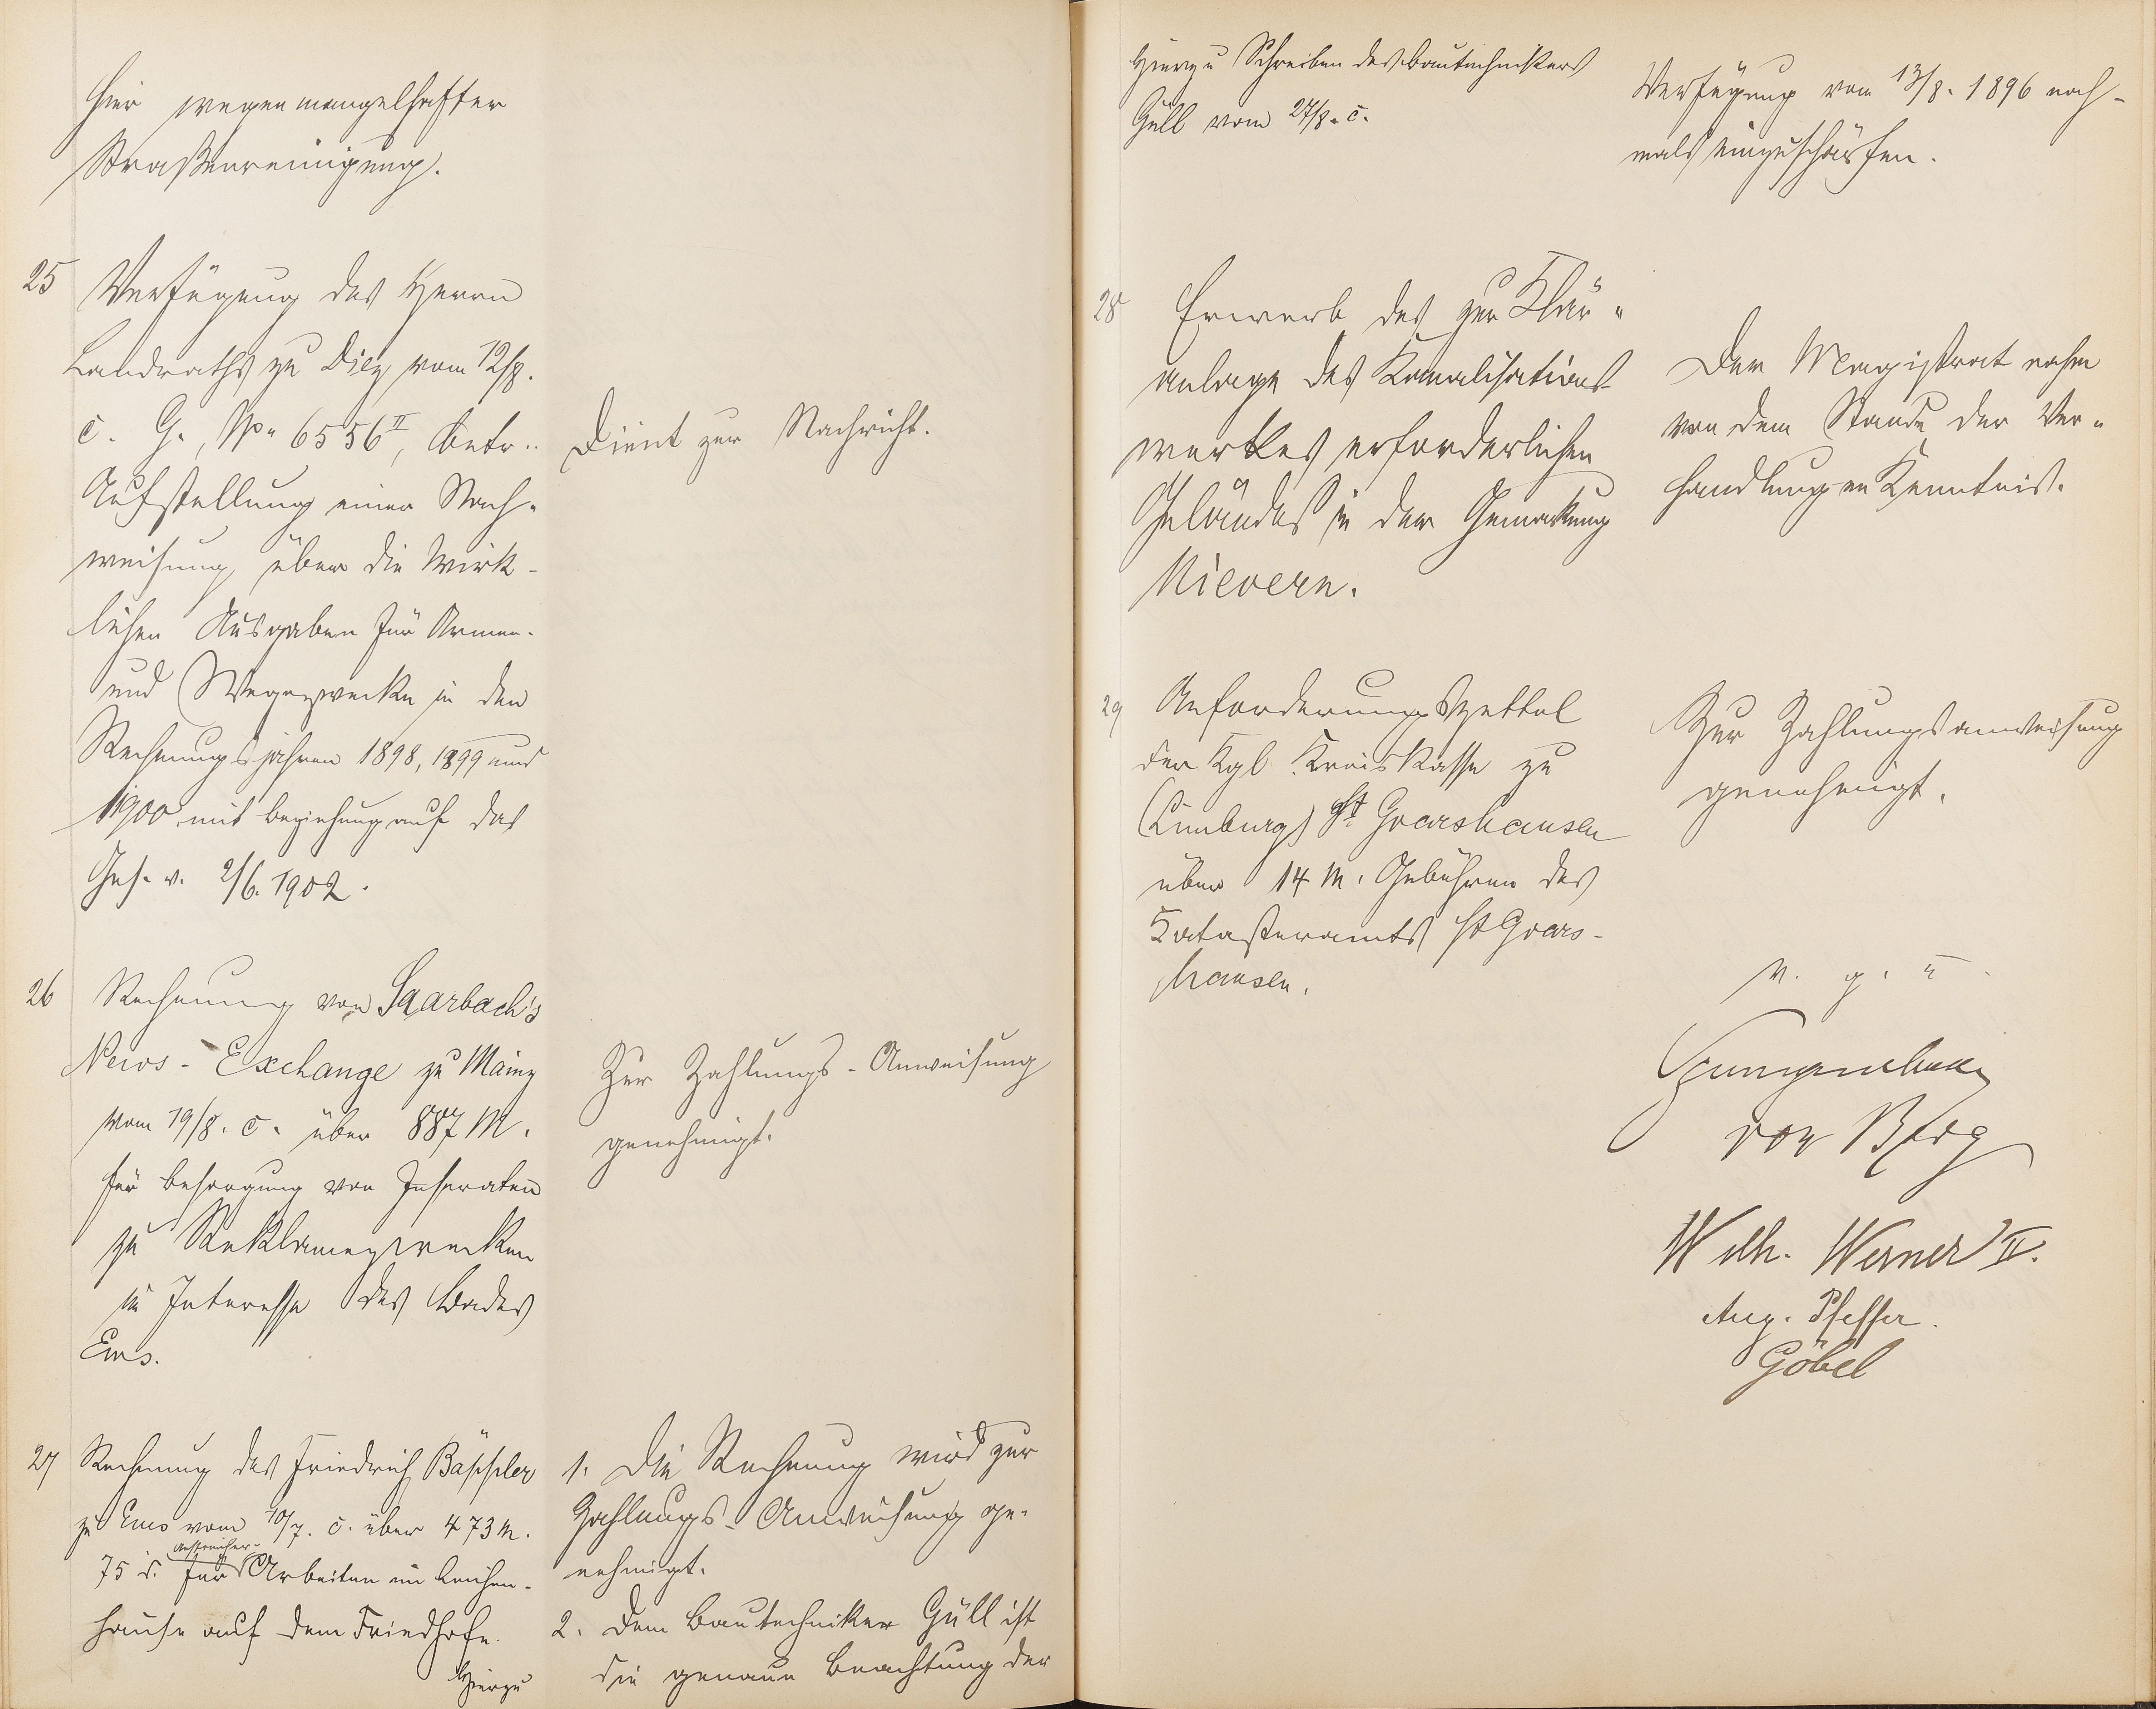 hier wegen mangelhafter
Straßenreinigung.
25
Verfügung des Herrn
Landraths zu Diez vom 12/8.
c. G., No 6556 II, betr.
Aufstellung einer Nach-
weisung über die wirk-
lichen Ausgaben für Armen-
und Wegezwecke in den
Rechnungsjahren 1898, 1899 und
1900 mit Beziehung auf das
Ges. v. 2/6. 1902.
Dient zur Nachricht.
26
Rechnung von Saarbach's
News-Exchange zu Mainz
vom 19/8. c. über 887 M.
für Besorgung von Inseraten
zu Reklamezwecken
im Interesse des Bades
Ems.
Zur Zahlungs-Anweisung
genehmigt.
27
Rechnung des Friedrich Bäppler
zu Ems vom 10/7. c. über 473 M.
Anstreicher-
75 d. für Arbeiten im Leichen-
hause auf dem Friedhofe.
Hierzu
1. Die Rechnung wird zur
Zahlungs-Anweisung ge-
nehmigt.
2. Dem Bautechniker Güll ist
die genaue Beachtung der
Hierzu Schreiben des Bautechnikers
Güll vom 27/8. c.
Verfügung vom 13/8. 1896 noch-
mals einzuschärfen.
28
Erwerb des zur Klär-
anlage des Kanalisations-
werkes erforderlichen
Geländes in der Gemarkung
Nievern.
Der Magistrat nahm
von dem Stande der Ver-
handlungen Kenntnis.
29
Anforderungszettel
der Kgl. Kreiskasse zu
(Limburg) St. Goarshausen
über 14 M. Gebühren des
Katasteramts St Goars-
hausen.
Zur Zahlungsanweisung
genehmigt.
v. g. u.
von Berg
Wilh. Werner II.
Aug. Pfeffer.
Göbel